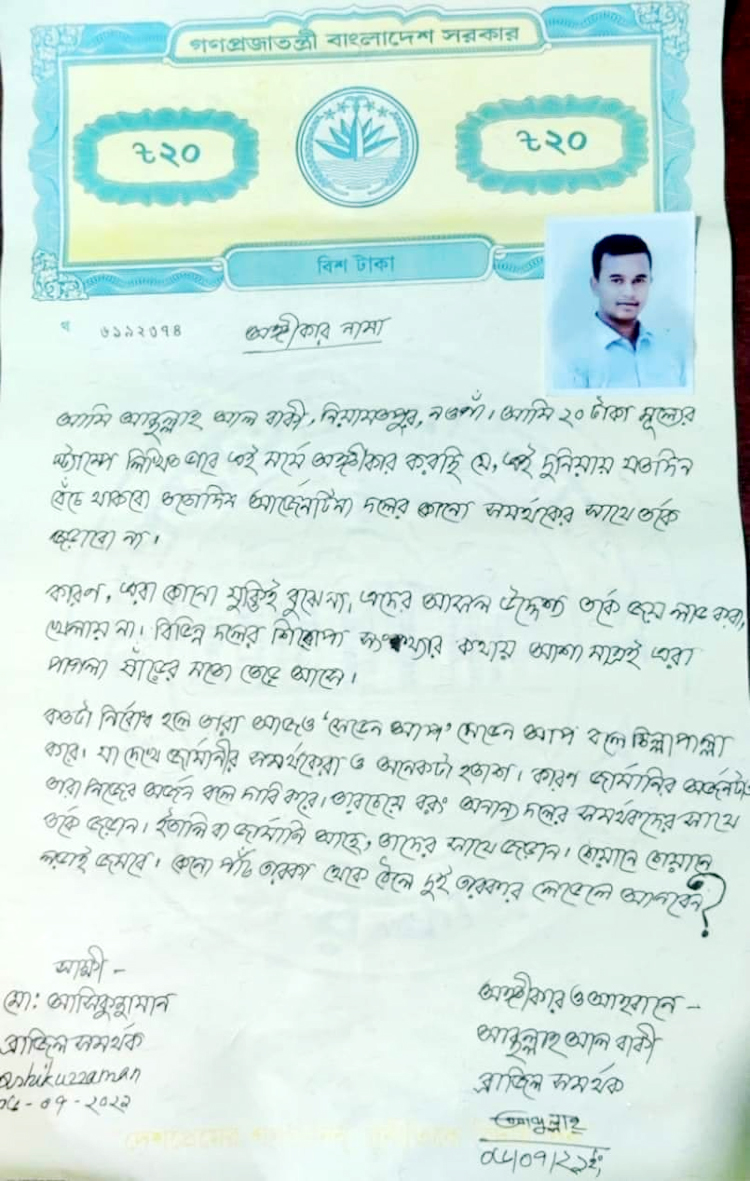 গণপ্রজাতন্ত্রী বাংলাদেশ সরকার
৳২০
৳২০
বিশ টাকা
থ ৬১৯২০৭৪
অঙ্গীকার নামা
আমি আব্দুল্লাহ আল বাকী, নিয়ামতপুর, নওগাঁ। আমি ২০ টাকা মূল্যের
স্ট্যাম্পে লিখিত ভাবে এই মর্মে অঙ্গীকার করছি যে, এই দুনিয়ায় যতদিন
বেঁচে থাকবো ততোদিন আর্জেনটিনা দলের কোনো সমর্থকের সাথে তর্কে
জড়াবো না।
কারণ, এরা কোনো যুক্তিই বুঝেনা, এদের আসল উদ্দেশ্য তর্কে জয় লাভ করা,
খেলায় না। বিভিন্ন দলের শিরোপা সংখ্যার কথায় আশা মাত্রই এরা
পাগলা ষাঁড়ের মতো তেড়ে আসে।
কতটা নির্বোধ হলে তারা আজও 'সেভেন আপ' সেভেন আপ বলে চিল্লাপাল্লা
করে। যা দেখে জার্মানীর সমর্থকেরা ও অনেকটা হতাশ। কারণ জার্মানির অর্জনটাও
তারা নিজের অর্জন বলে দাবি করে। তারচেয়ে বরং অন্যান্য দলের সমর্থকদের সাথে
তর্কে জড়ান। ইতালি বা জার্মানি আছে, তাদের সাথে জড়ান। শেয়ানে শেয়ানে
লড়াই জমবে। কেনো পাঁচ তারকা থেকে ঠেলে দুই তারকার লেভেলে আনবেন?
সাক্ষী -
মো: আসিকুজ্জামান
ব্রাজিল সমর্থক
ashikuzzaman
০৮-০৭-২০২১
অঙ্গীকার ও আহবানে -
আব্দুল্লাহ আল বাকী
ব্রাজিল সমর্থক
আব্দুল্লাহ
০৮/০৭/২১ইং